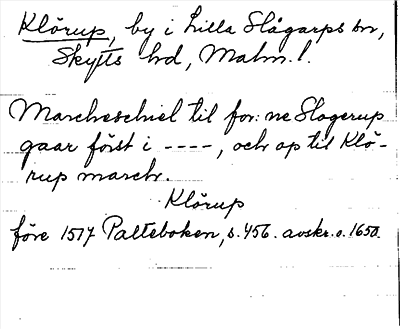 Klörup, by i Lilla Slågarps sn,
Skytts hd, Malm. l.
Marcheschiel til for: ne Slogerup
gaar först i ----, och op til Klö-
rup march.
Klörup
före 1517 Palteboken, s. 456. avskr. o. 1650.